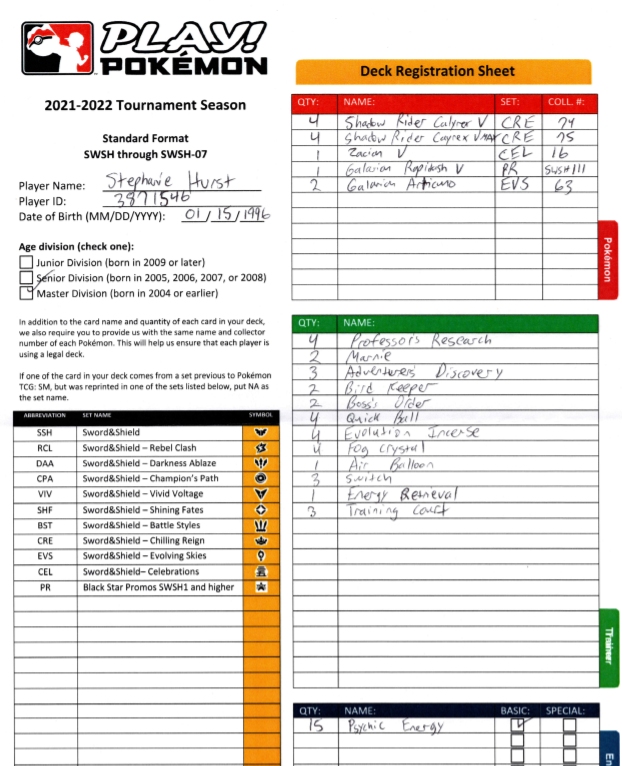 PLAY!
POKÉMON
2021-2022 Tournament Season
Standard Format
SWSH through SWSH-07
Player Name: Stephanie Hurst
Player ID: 3871546
Date of Birth (MM/DD/YYYY): 01 / 15 / 1996
Age division (check one):
Junior Division (born in 2009 or later)
Senior Division (born in 2005, 2006, 2007, or 2008)
Master Division (born in 2004 or earlier)
In addition to the card name and quantity of each card in your deck,
we also require you to provide us with the same name and collector
number of each Pokémon. This will help us ensure that each player is
using a legal deck.
If one of the card in your deck comes from a set previous to Pokémon
TCG: SM, but was reprinted in one of the sets listed below, put NA as
the set name.
ABBREVIATION SET NAME SYMBOL
SSH Sword&Shield
RCL Sword&Shield – Rebel Clash
DAA Sword&Shield – Darkness Ablaze
CPA Sword&Shield – Champion's Path
VIV Sword&Shield – Vivid Voltage
SHF Sword&Shield – Shining Fates
BST Sword&Shield – Battle Styles
CRE Sword&Shield – Chilling Reign
EVS Sword&Shield – Evolving Skies
CEL Sword&Shield– Celebrations
PR Black Star Promos SWSH1 and higher
Deck Registration Sheet
QTY: NAME: SET: COLL. #:
4 Shadow Rider Calyrex V CRE 74
4 Shadow Rider Cayrex VMAX CRE 75
1 Zacian V CEL 16
1 Galarian Rapidash V PR SWSH111
2 Galarian Articuno EVS 63
Pokémon
QTY: NAME:
4 Professor's Research
2 Marnie
3 Adventurers Discovery
2 Bird Keeper
2 Boss's Order
4 Quick Ball
4 Evolution Incense
4 Fog Crystal
1 Air Balloon
3 Switch
1 Energy Retrieval
3 Training Court
Trainer
QTY: NAME: BASIC: SPECIAL:
15 Psychic Energy
En